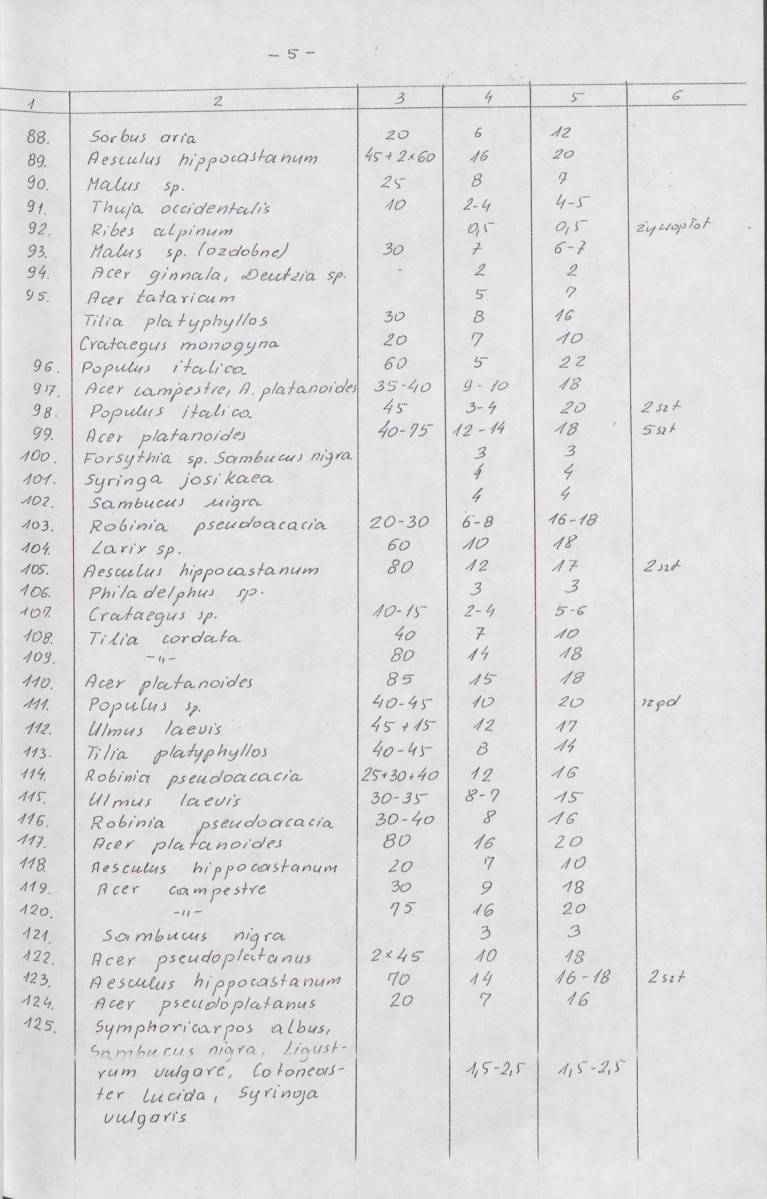 - 5 -
1 2 3 4 5 6
88. Sorbus aria 20 6 12
89. Aesculus hippocastanum 45+2×60 16 20
90. Malus sp. 25 8 7
91. Thuja occidentalis 10 2-4 4-5
92. Ribes alpinum 0,5 0,5 żywopłot
93. Malus sp. (ozdobne) 30 7 6-7
94. Acer ginnala, Deutzia sp. - 2 2
95. Acer tataricum 5 7
Tilia platyphyllos 30 8 16
Crataegus monogyna 20 7 10
96. Populus italica 60 5 22
97. Acer campestre, A. platanoides 35-40 9-10 18
98. Populus italica 45 3-4 20 2 szt
99. Acer platanoides 40-75 12-14 18 5 szt
100. Forsythia sp. Sambucus nigra 3 3
101. Syringa josikaea 4 4
102. Sambucus nigra 4 4
103. Robinia pseudoacacia 20-30 6-8 16-18
104. Larix sp. 60 10 18
105. Aesculus hippocastanum 80 12 17 2 szt
106. Philadelphus sp. 3 3
107. Crataegus sp. 10-15 2-4 5-6
108. Tilia cordata 40 7 10
109. -"- 80 14 18
110. Acer platanoides 85 15 18
111. Populus sp. 40-45 10 20 rząd
112. Ulmus laevis 45+15 12 17
113. Tilia platyphyllos 40-45 8 14
114. Robinia pseudoacacia 25+30+40 12 16
115. Ulmus laevis 30-35 8-7 15
116. Robinia pseudoacacia 30-40 8 16
117. Acer platanoides 80 16 20
118. Aesculus hippocastanum 20 7 10
119. Acer campestre 30 9 18
120. -"- 75 16 20
121. Sambucus nigra 3 3
122. Acer pseudoplatanus 2×45 10 18
123. Aesculus hippocastanum 70 14 16-18 2 szt
124. Acer pseudoplatanus 20 7 16
125. Symphoricarpos albus,
Sambucus nigra, Ligust-
rum vulgare, Cotoneas- 1,5-2,5 1,5-2,5
ter Lucida, Syringa
vulgaris